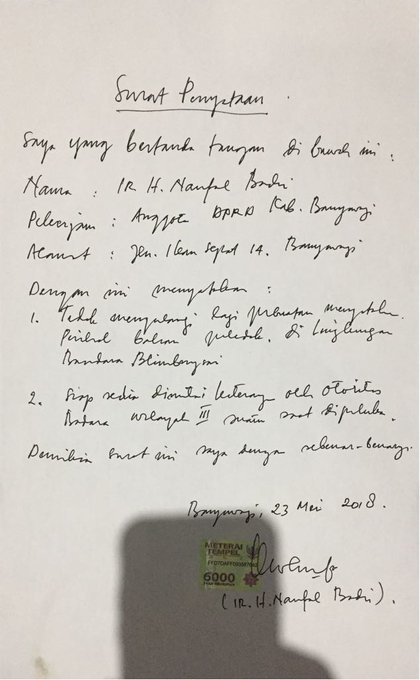 Surat Pernyataan
Saya yang bertanda tangan di bawah ini :
Nama : IR. H. Naufal Badri
Pekerjaan : Anggota DPRD Kab. Banyuwangi
Alamat : Jln. Ikan 14. Banyuwangi
Dengan ini menyatakan :
1. Tidak mengulangi lagi perbuatan menyatakan
Perihal bahan peledak, di Lingkungan
Bandara Blimbingsari
2. Siap sedia dimintai keterangan oleh otoritas
Badara wilayah III saat diperlukan.
Demikian surat ini saya dengan sebenar-benarnya.
Banyuwangi, 23 Mei 2018.
METERAI
TEMPEL
6000
(IR. H. Naufal Badri).